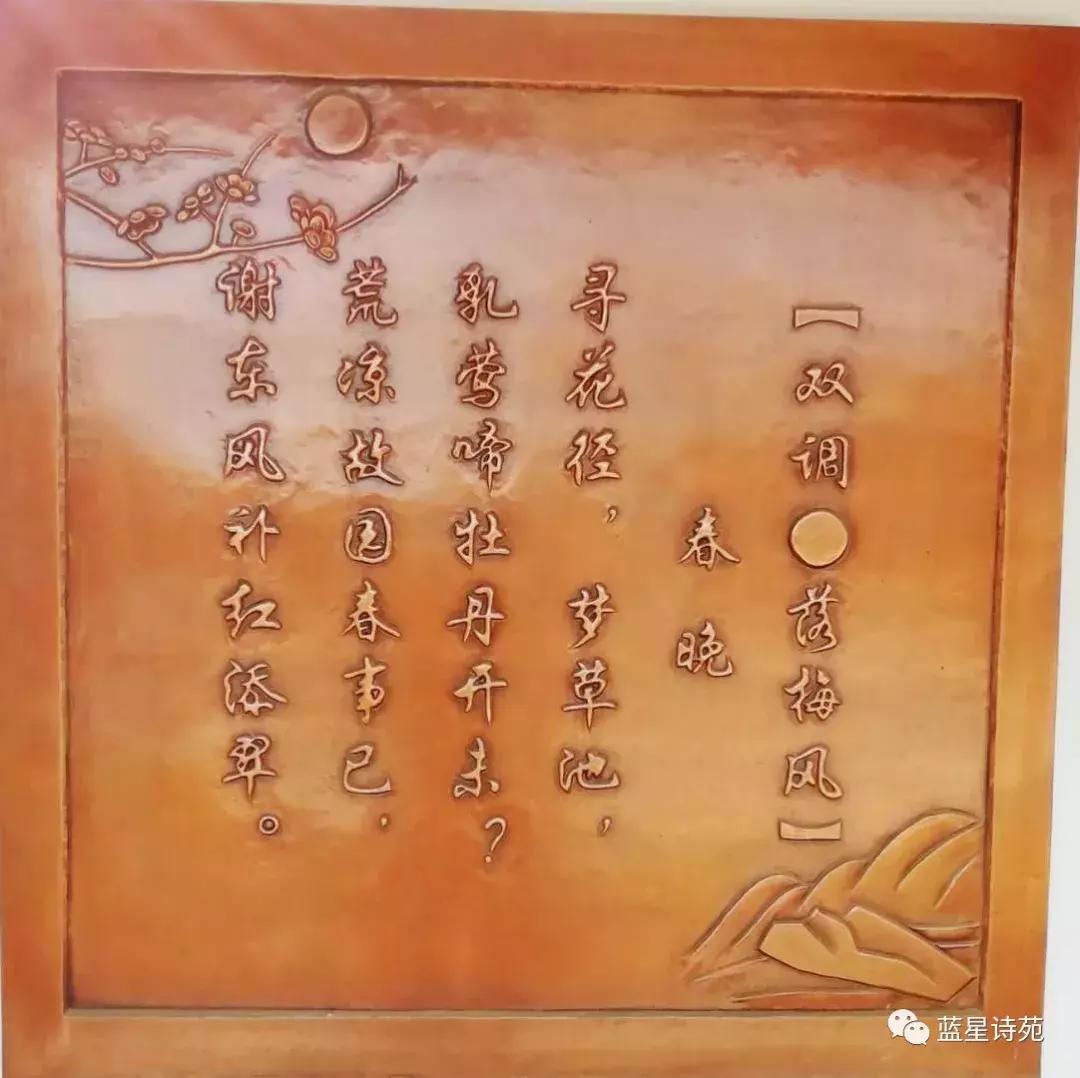 【双调●落梅风】
春晚
寻花径，梦草池，
乳莺啼牡丹开未？
荒凉故园春事已，
谢东风补红添翠。
蓝星诗苑